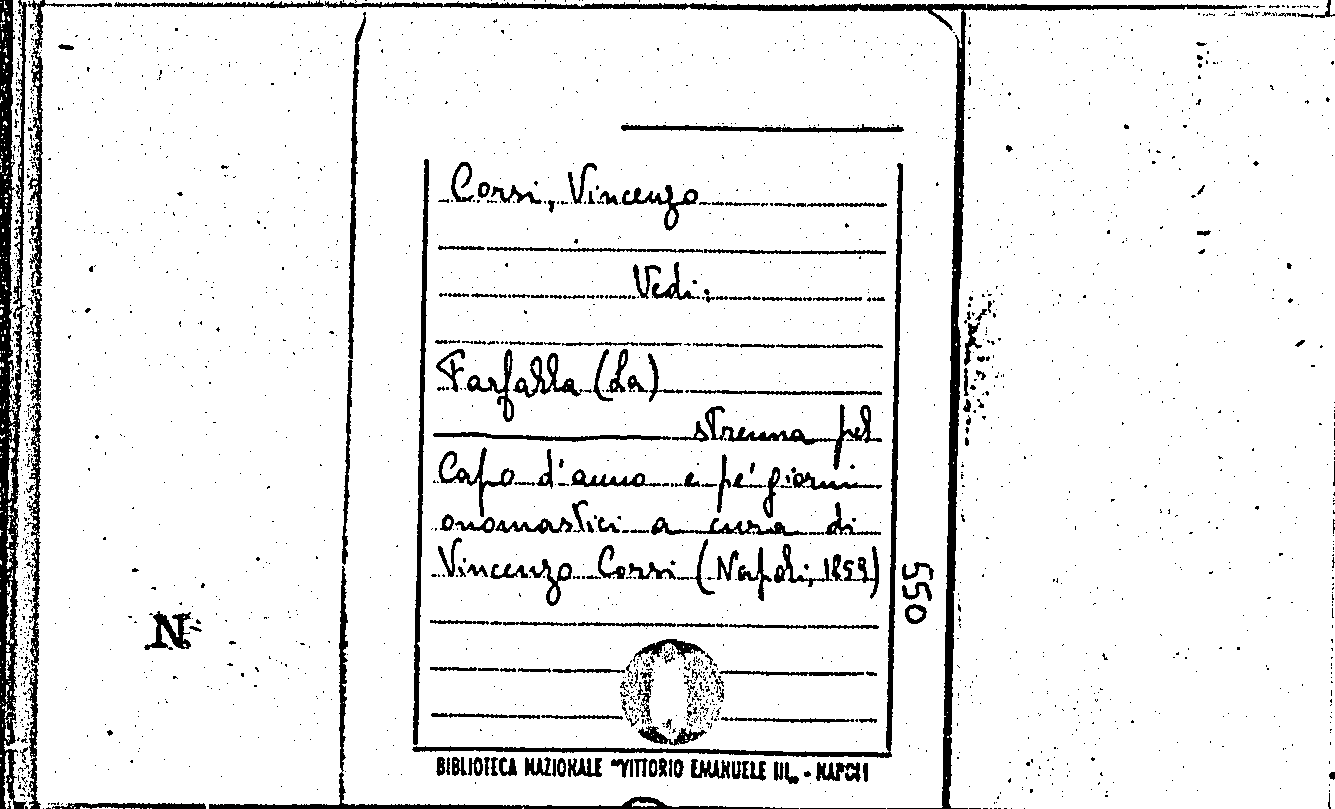 Corsi, Vincenzo
Vedi:
Farfalla (La)
strenna pel
Capo d'anno e pe' giorni
onomastici a cura di
Vincenzo Corsi (Napoli, 1859)
550
N
BIBLIOTECA NAZIONALE "VITTORIO EMANUELE III„ - NAPOLI